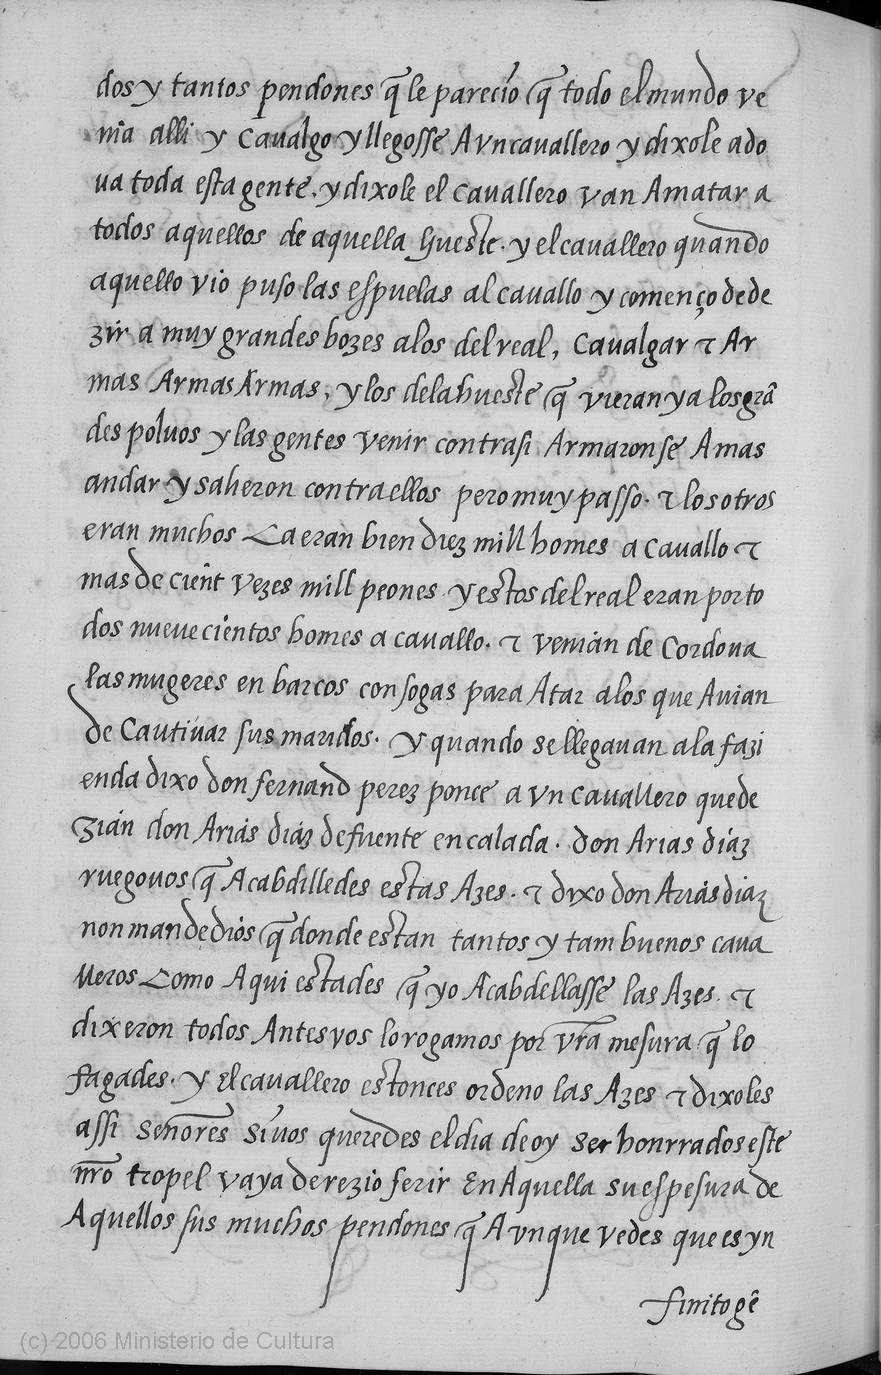 dos y tantos pendones q̃ le parecío q̃ todo el mundo ve
nía alli y Caualgo y llegosse A vn cauallero y dixole ado
ua toda esta gente. y dixole el cauallero van A matar a
todos aquellos de aquella hueste. y el cauallero quando
aquello vio puso las espuelas al cauallo y començo de de
zir a muy grandes bozes a los del real, Caualgar τ Ar
mas Armas Armas, y los de la hueste q̃ vieran ya los grã
des poluos y las gentes venir contra si Armaronse A mas
andar y salieron contra ellos pero muy passo. τ los otros
eran muchos Ca eran bien diez mill homes a cauallo τ
mas de cient vezes mill peones y estos del real eran por to
dos nueue cientos homes a cauallo. τ venian de Cordoua
las mugeres en barcos con sogas para Atar a los que Auian
de Cautiuar sus maridos. y quando se llegauan a la fazi
enda dixo don fernand perez ponce a vn cauallero que de
zián don Ariás diáz de fuente encalada. don Arias díaz
ruegouos q̃ Acabdilledes estas Azes. τ dixo don Ariás diaz
non mande diós q̃ donde estan tantos y tam buenos caua
lleros Como Aqui estades q̃ yo Acabdellasse las Azes. τ
dixeron todos Antes vos lo rogamos por vr̃a mesura q̃ lo
fagades. y El cauallero estonces ordeno las Azes τ dixoles
assi señores Si uos queredes el dia de oy ser honrrados este
nr̃o tropel vaya de rezio ferir En Aquella su espesura de
Aquellos sus muchos pendones q̃ A vn que vedes que es yn
finito gẽ
(c) 2006 Ministerio de Cultura